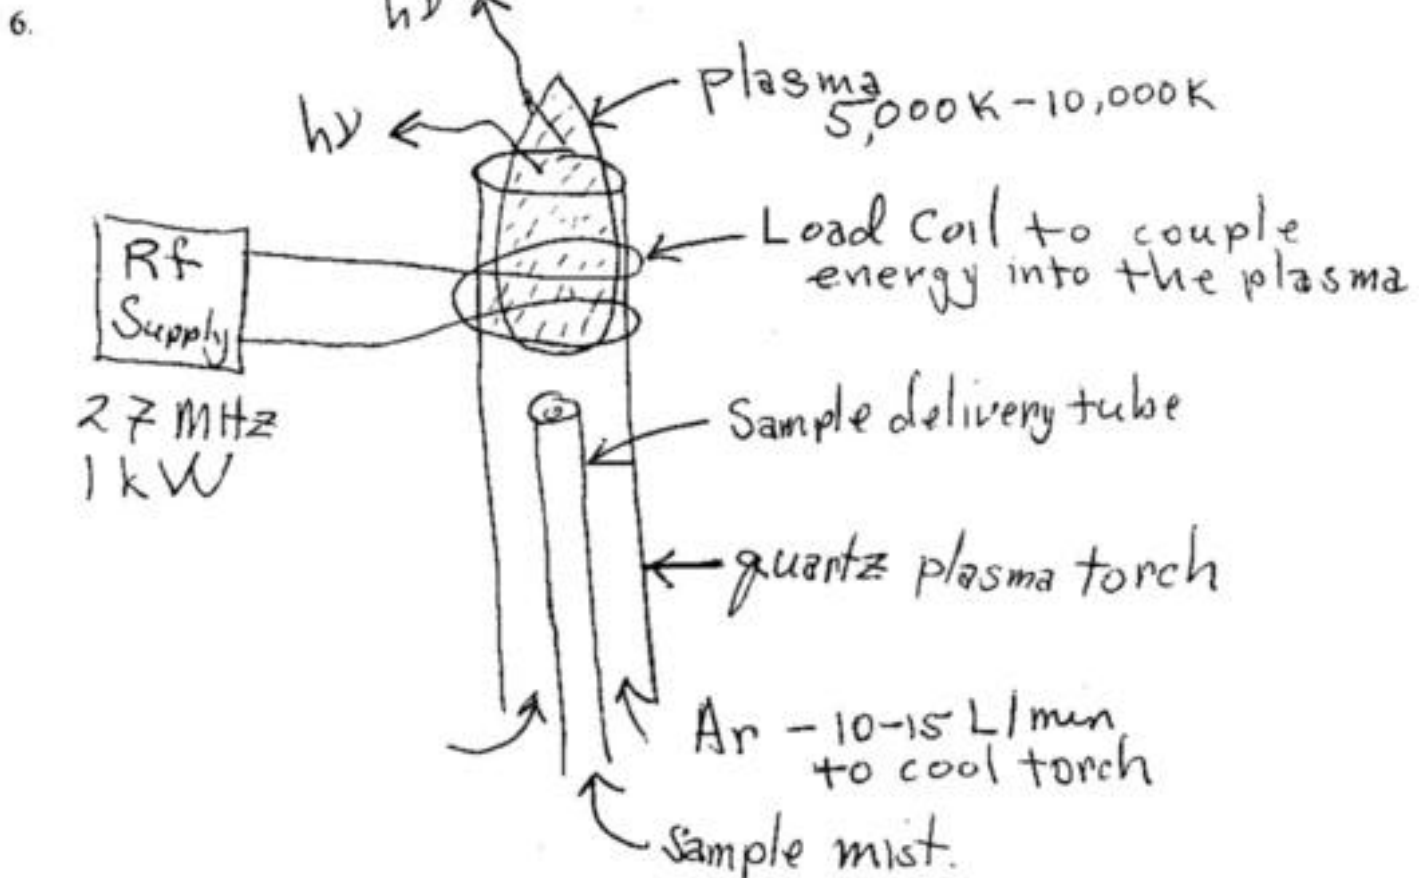 6.
hν
hν
plasma
5,000K-10,000K
Rf
Supply
27 MHz
1 kW
Load Coil to couple
energy into the plasma
Sample delivery tube
quartz plasma torch
Ar - 10-15 L/min
to cool torch
Sample mist.